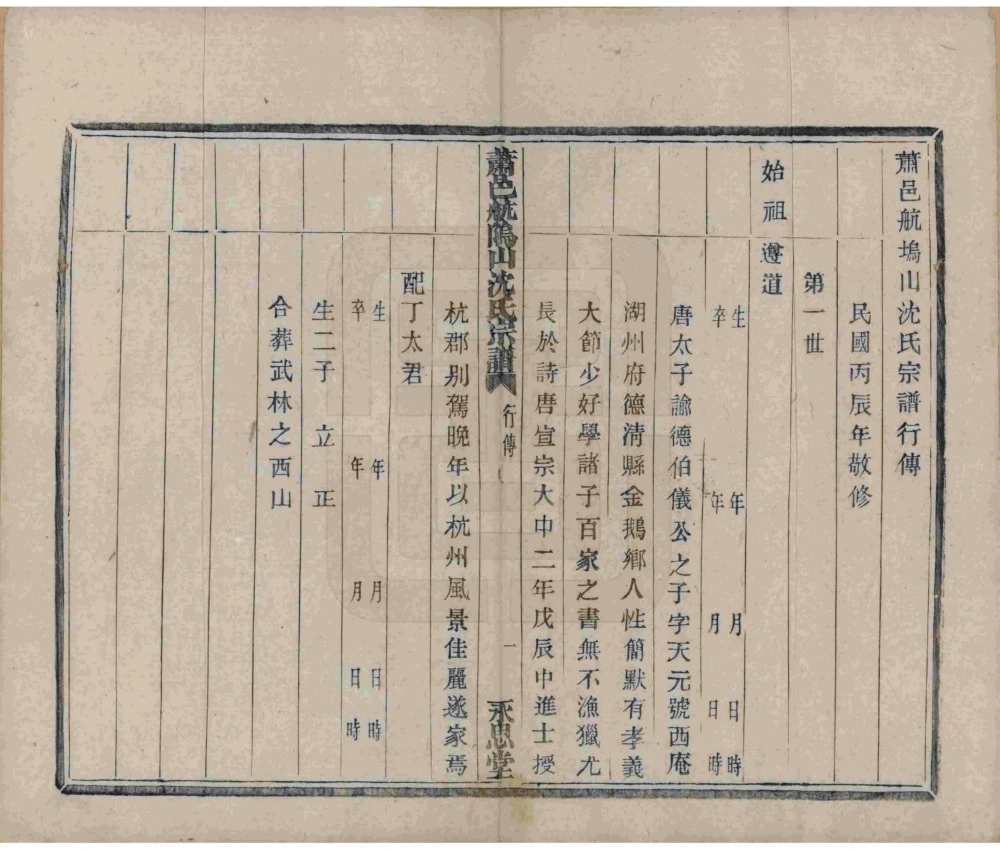 蕭邑航塢山沈氏宗譜行傳
民國丙辰年敬修
第一世
始祖 遵道
生 年 月 日 時
卒 年 月 日 時
唐太子諭德伯儀公之子字天元號西庵
湖州府德清縣金鵝鄉人性簡默有孝義
大節少好學諸子百家之書無不漁獵尤
長於詩唐宣宗大中二年戊辰中進士授
蕭邑航塢山沈氏宗譜 行傳 一 永思堂
杭郡別駕晚年以杭州風景佳麗遂家焉
配丁太君
生 年 月 日 時
卒 年 月 日 時
生二子 立 正
合葬武林之西山